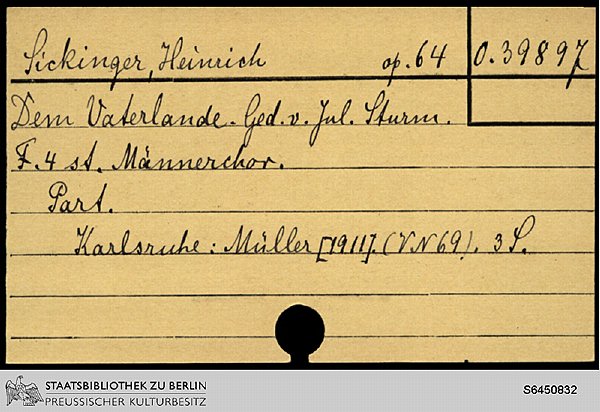 Sickinger, Heinrich op. 64 O. 39897
Dem Vaterlande. Ged. v. Jul. Sturm.
F. 4 st. Männerchor.
Part.
Karlsruhe: Müller [1911]. (VN 69). 3 S.
STAATSBIBLIOTHEK ZU BERLIN
PREUSSISCHER KULTURBESITZ
S6450832